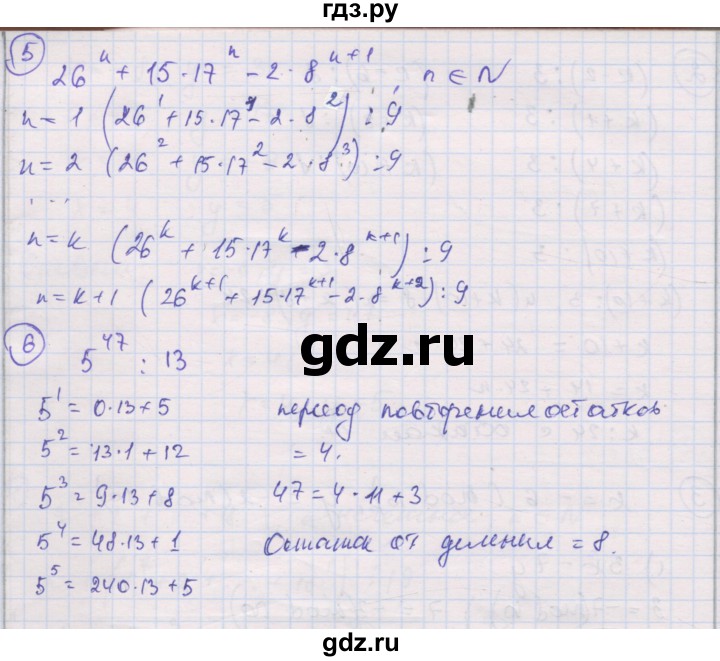 гдз.ру
5
26^n + 15·17^n - 2·8^{n+1}, n ∈ N
n = 1 (26^1 + 15·17^1 - 2·8^2) ⋮ 9
n = 2 (26^2 + 15·17^2 - 2·8^3) ⋮ 9
. . .
n = k (26^k + 15·17^k - 2·8^{k+1}) ⋮ 9
n = k+1 (26^{k+1} + 15·17^{k+1} - 2·8^{k+2}) ⋮ 9
6
5^47 : 13
gdz.ru
5^1 = 0·13+5
период повторения остатков
5^2 = 13·1+12
= 4.
5^3 = 9·13+8
47 = 4·11+3
5^4 = 48·13+1
Остаток от деления = 8.
5^5 = 240·13+5
gdz.ru